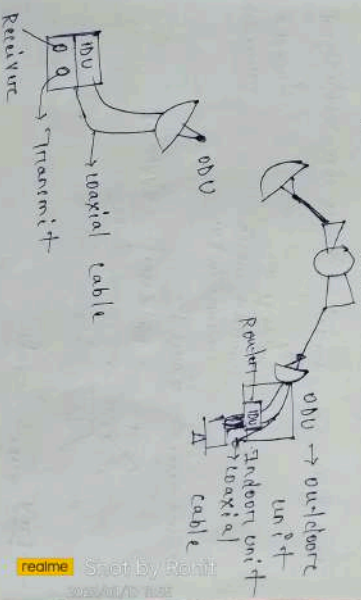 ODU → outdoore
unit
Router
IDU
→ Indoor unit
→ coaxial
cable
ODU
IDU
→ coaxial cable
→ Transmit
Receivere
realme
Shot by Rohit